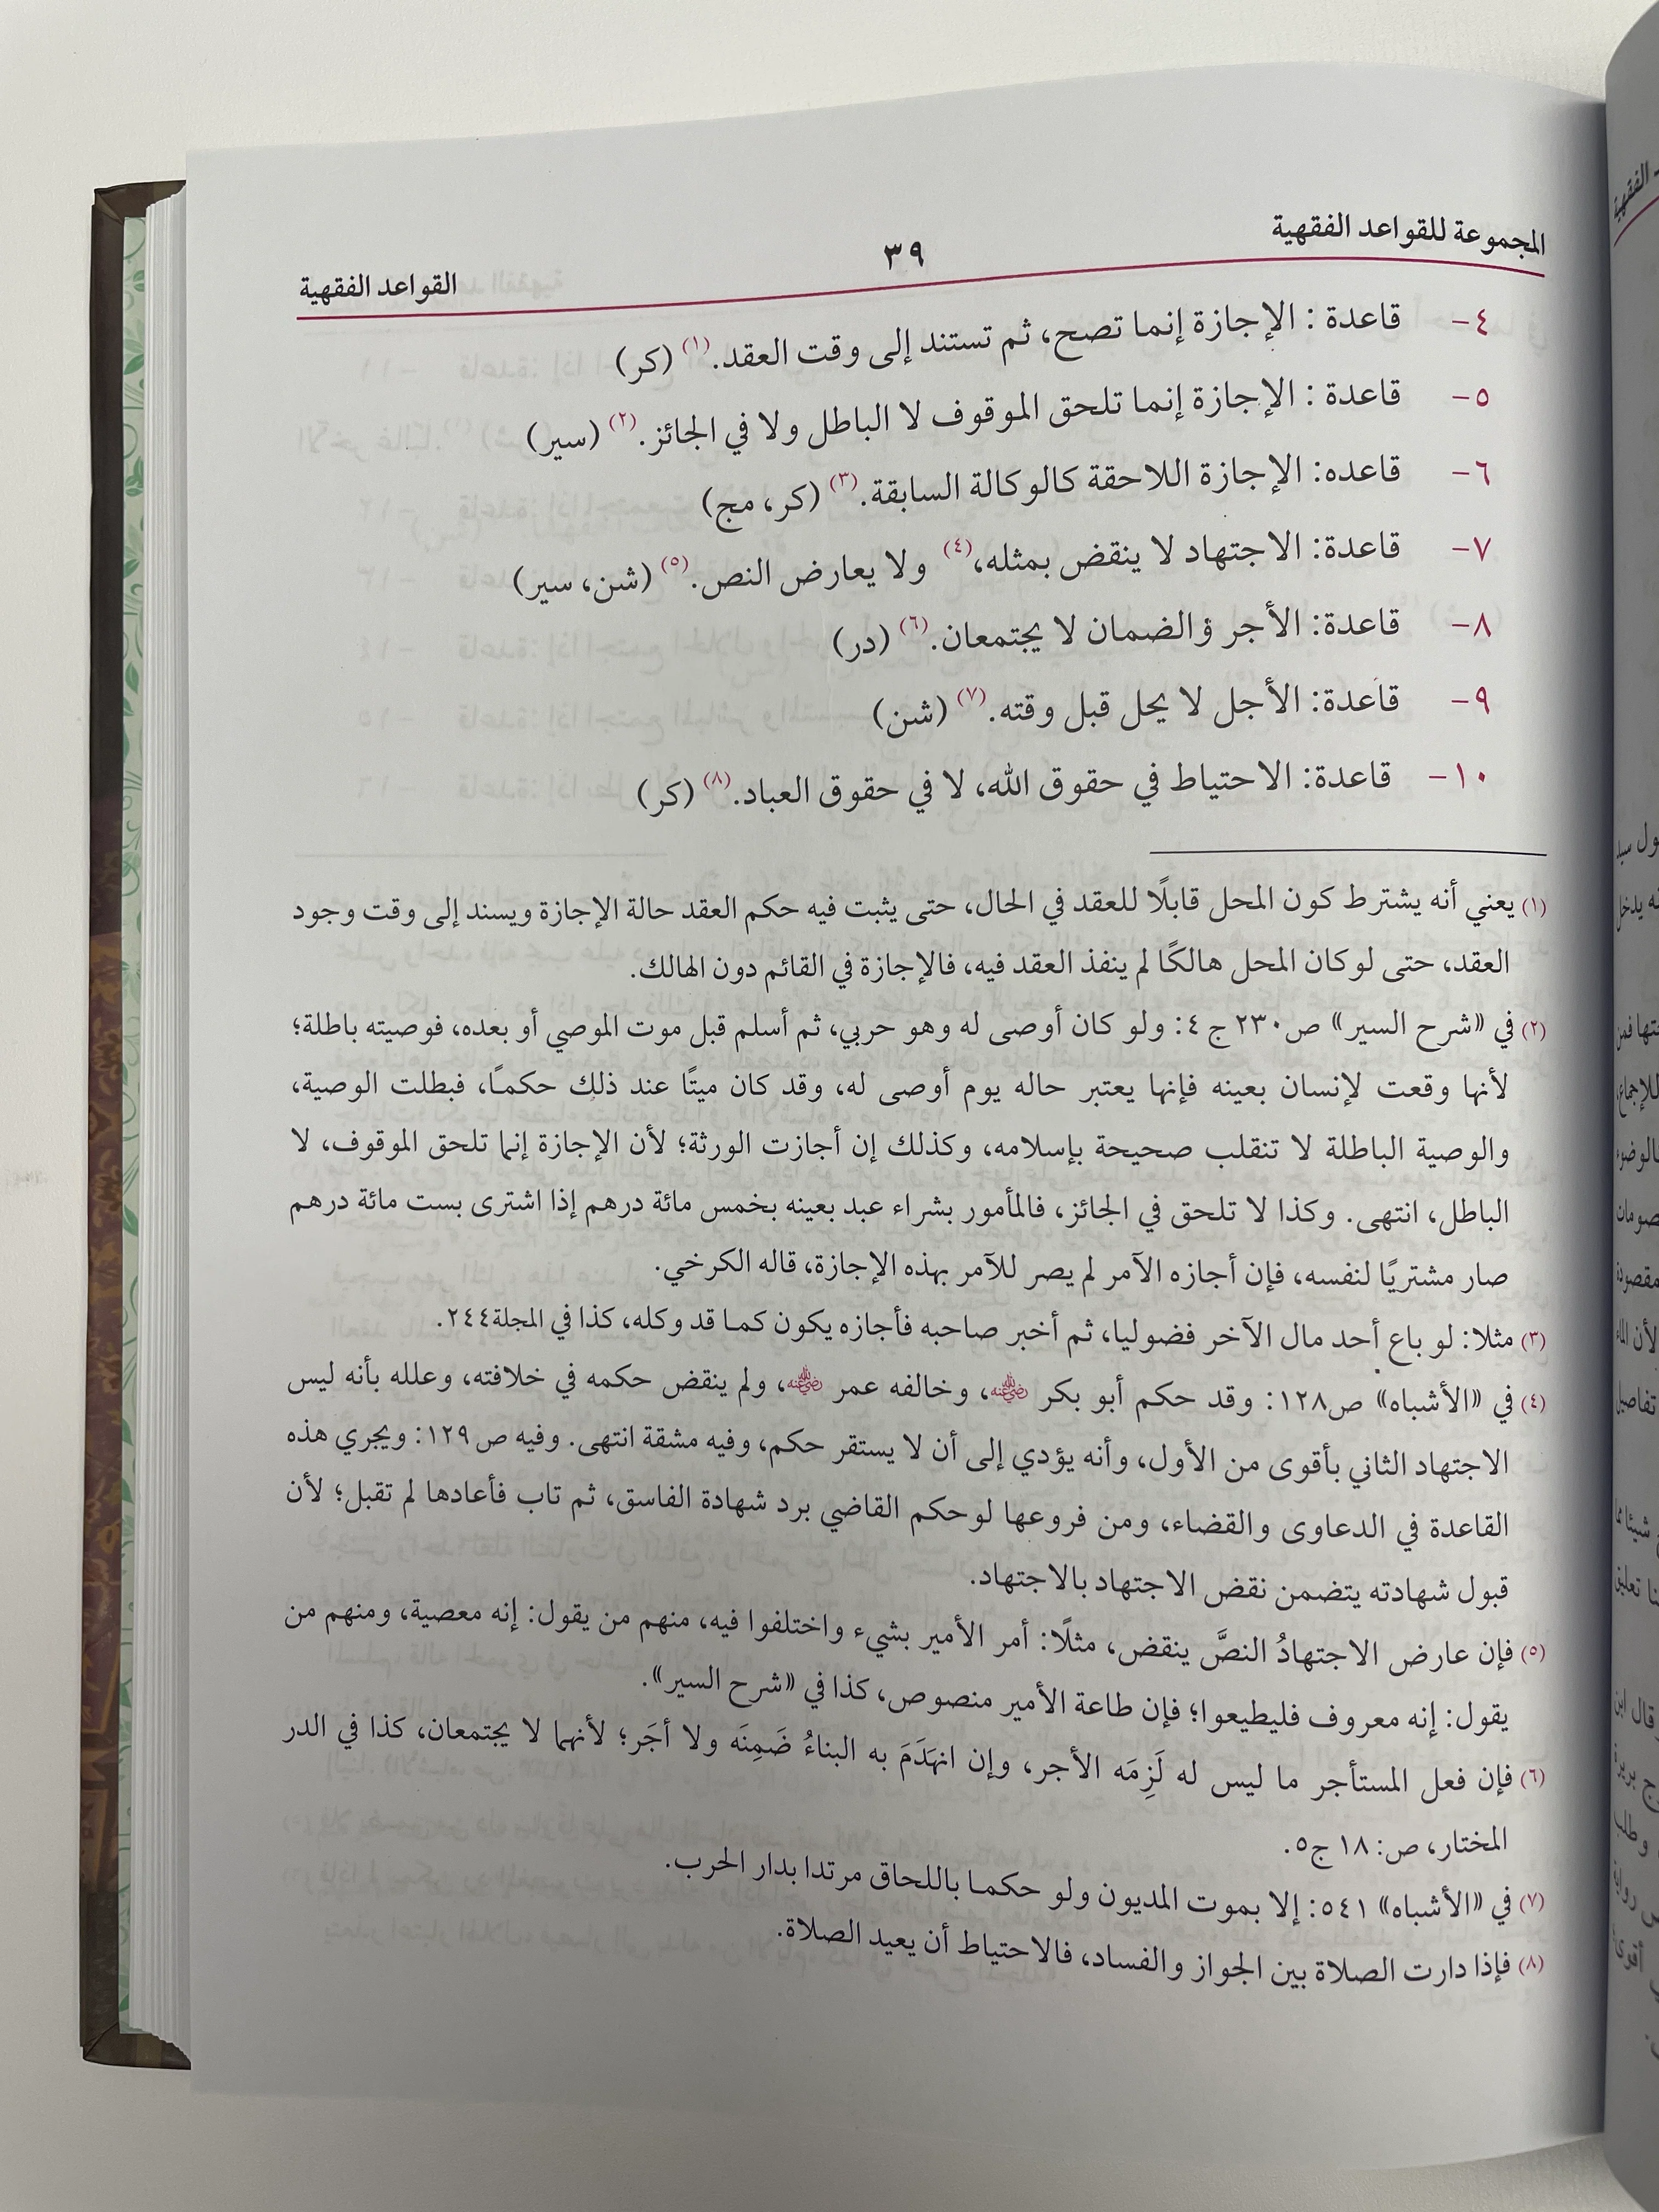 المجموعة للقواعد الفقهية
٣٩
القواعد الفقهية
٤- قاعدة : الإجازة إنما تصح، ثم تستند إلى وقت العقد.(١) (كر)
٥- قاعدة : الإجازة إنما تلحق الموقوف لا الباطل ولا في الجائز.(٢) (سير)
٦- قاعده: الإجازة اللاحقة كالوكالة السابقة.(٣) (كر، مج)
٧- قاعدة: الاجتهاد لا ينقض بمثله،(٤) ولا يعارض النص.(٥) (شن، سير)
٨- قاعدة: الأجر ؤالضمان لا يجتمعان.(٦) (در)
٩- قاعدة: الأجل لا يحل قبل وقته.(٧) (شن)
١٠- قاعدة: الاحتياط في حقوق الله، لا في حقوق العباد.(٨) (كر)
(١) يعني أنه يشترط كون المحل قابلًا للعقد في الحال، حتى يثبت فيه حكم العقد حالة الإجازة ويسند إلى وقت وجود
العقد، حتى لو كان المحل هالكًا لم ينفذ العقد فيه، فالإجازة في القائم دون الهالك.
(٢) في «شرح السير» ص٢٣٠ ج ٤: ولو كان أوصى له وهو حربي، ثم أسلم قبل موت الموصي أو بعده، فوصيته باطلة؛
لأنها وقعت لإنسان بعينه فإنها يعتبر حاله يوم أوصى له، وقد كان ميتًا عند ذلك حكمـًا، فبطلت الوصية،
والوصية الباطلة لا تنقلب صحيحة بإسلامه، وكذلك إن أجازت الورثة؛ لأن الإجازة إنما تلحق الموقوف، لا
الباطل، انتهى. وكذا لا تلحق في الجائز، فالمأمور بشراء عبد بعينه بخمس مائة درهم إذا اشترى بست مائة درهم
صار مشتريًا لنفسه، فإن أجازه الآمر لم يصر للآمر بهذه الإجازة، قاله الكرخي.
(٣) مثلا: لو باع أحد مال الآخر فضوليا، ثم أخبر صاحبه فأجازه يكون كمـا قد وكله، كذا في المجلة٢٤٤.
(٤) في «الأشباه» ص١٢٨: وقد حكم أبو بكر رضي الله عنه، وخالفه عمر رضي الله عنه، ولم ينقض حكمه في خلافته، وعلله بأنه ليس
الاجتهاد الثاني بأقوى من الأول، وأنه يؤدي إلى أن لا يستقر حكم، وفيه مشقة انتهى. وفيه ص ١٢٩: ويجري هذه
القاعدة في الدعاوى والقضاء، ومن فروعها لو حكم القاضي برد شهادة الفاسق، ثم تاب فأعادها لم تقبل؛ لأن
قبول شهادته يتضمن نقض الاجتهاد بالاجتهاد.
(٥) فإن عارض الاجتهادُ النصَّ ينقض، مثلًا: أمر الأمير بشيء واختلفوا فيه، منهم من يقول: إنه معصية، ومنهم من
يقول: إنه معروف فليطيعوا؛ فإن طاعة الأمير منصوص، كذا في «شرح السير».
(٦) فإن فعل المستأجر ما ليس له لَزِمَه الأجر، وإن انهَدَمَ به البناءُ ضَمِنَه ولا أجَر؛ لأنهما لا يجتمعان، كذا في الدر
المختار، ص: ١٨ ج٥.
(٧) في «الأشباه» ٥٤١: إلا بموت المديون ولو حكمـا باللحاق مرتدا بدار الحرب.
(٨) فإذا دارت الصلاة بين الجواز والفساد، فالاحتياط أن يعيد الصلاة.